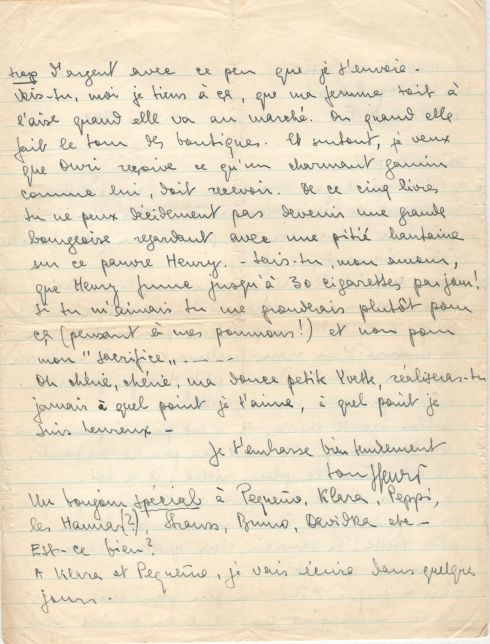 trop d'argent avec ce peu que je t'envoie.
Vois-tu, moi je tiens à ça, que ma femme soit à
l'aise quand elle va au marché. Ou quand elle
fait le tour des boutiques. Et surtout, je veux
que Ouri reçoive ce qu'un charmant gamin
comme lui, doit recevoir. De ce cinq livres
tu ne peux décidement pas devenir une grande
bourgeoise regardant avec une pitié hautaine
sur ce pauvre Henry. - Sais-tu, mon amour,
que Henry fume jusqu'à 30 cigarettes par jour!
Si tu m'aimais tu me gronderais plutôt pour
ça (pensant à mes poumons!) et non pour
mon "sacrifice" -----
Oh chérie, chérie, ma douce petite Yvette, réaliseras-tu
jamais à quel point je t'aime, à quel point je
suis heureux -
Je t'embrasse bien tendrement
ton Henri
Un bonjour spécial à Pequeño, Klara, Peppi,
les Hannas(?) Strauss, Bruno, Davidka etc -
Est-ce bien?
A Klara et Pequeño, je vais écrire dans quelques
jours.